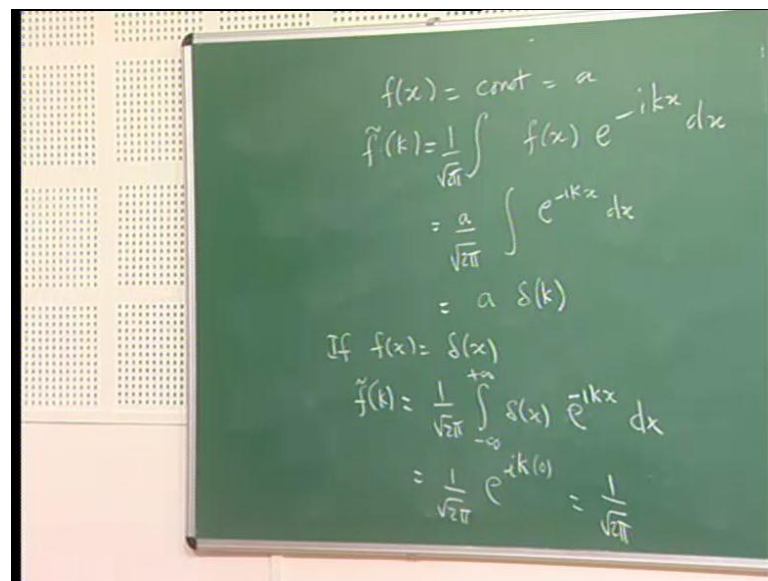 f(x) = const = a
f̃(k) = 1/√2π ∫ f(x) e^{-ikx} dx
= a/√2π ∫ e^{-ikx} dx
= a δ(k)
If f(x) = δ(x)
f̃(k) = 1/√2π ∫_{-∞}^{+∞} δ(x) e^{-ikx} dx
= 1/√2π e^{-ik(0)} = 1/√2π